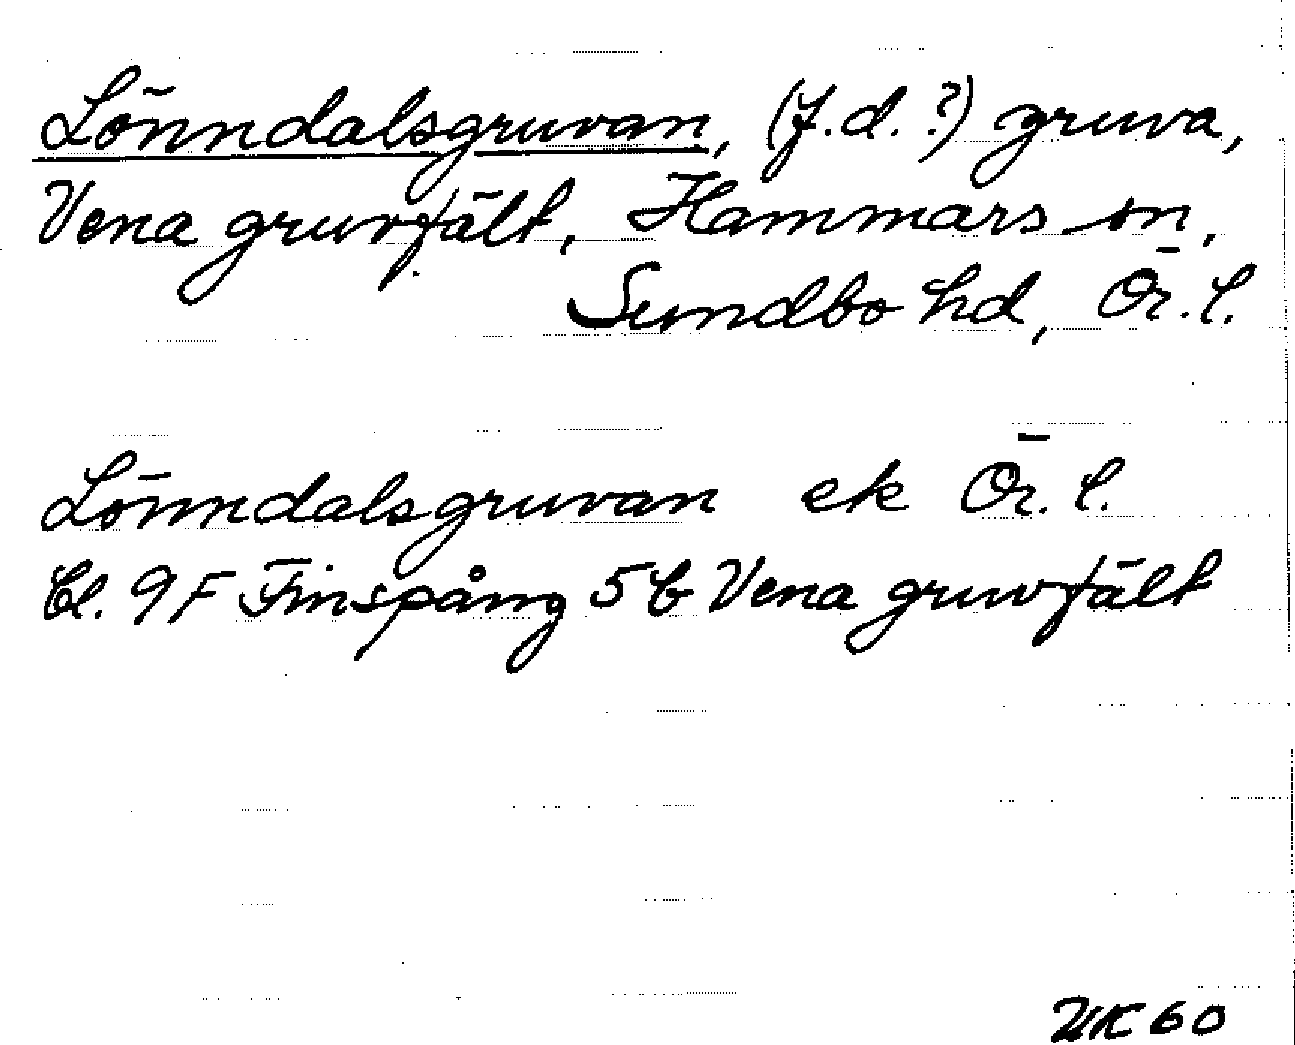 Lönndalsgruvan, (f.d.?) gruva,
Vena gruvfält, Hammars sn,
Sundbo hd, Ör. l.
Lönndalsgruvan ek Ör. l.
Bl. 9F Finspång 5b Vena gruvfält
60